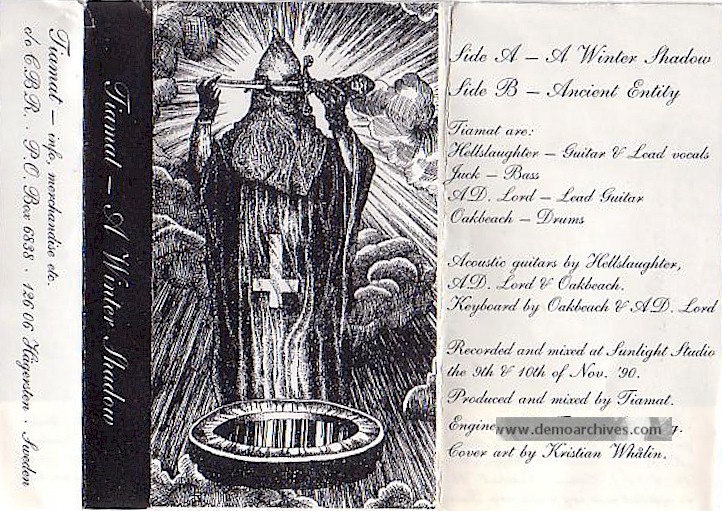 Tiamat — info, merchandise etc.
c/o C.B.R. · P.O. Box 6838 · 126 06 Hägersten · Sweden
Tiamat — A Winter Shadow
Side A — A Winter Shadow
Side B — Ancient Entity
Tiamat are:
Hellslaughter — Guitar & Lead vocals
Juck — Bass
A.D. Lord — Lead Guitar
Oakbeach — Drums
Acoustic guitars by Hellslaughter,
A.D. Lord & Oakbeach.
Keyboard by Oakbeach & A.D. Lord
Recorded and mixed at Sunlight Studio
the 9th & 10th of Nov. '90.
Produced and mixed by Tiamat.
www.demoarchives.com
Cover art by Kristian Whålin.